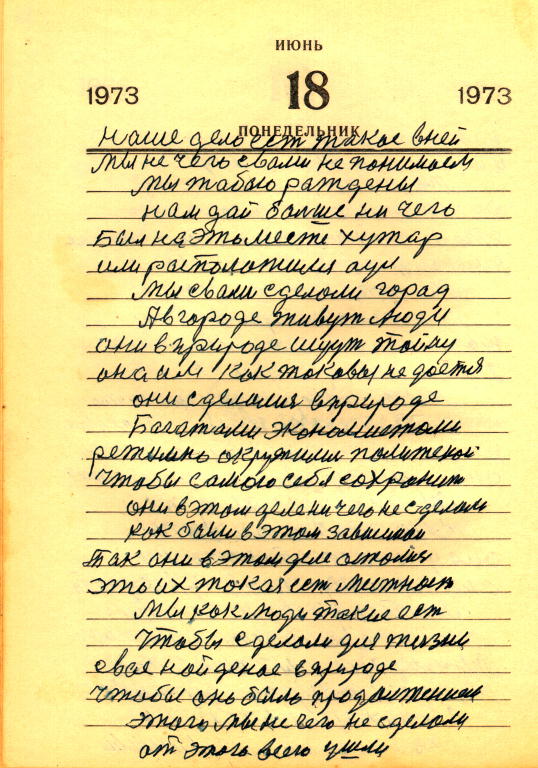 ИЮНЬ
1973 18 1973
ПОНЕДЕЛЬНИК
наше дело ест такое в ней
мы не чего свами не понимаем
мы табою раждены
нам дай болше ни чего
Был на эть месте хутар
или расположился аул
мы свами сделоли горад
А в городе живут люди
они в природе ищут тайну
она им как таковы не доется
они сделолис в природе
Багатами экономистами
режимно окружили политекой
Чтобы самого себя сохранит
они в этом деле ни чего не сделоли
как были в этом зависими
Так они в этом деле астолис
это их такая ест местност
мы как люди такие ест
Чтобы сделоли для жизни
свое найденое в природе
Чтобы онь было продолжением
этого мы не чего не сделоли
от этого всего ушли